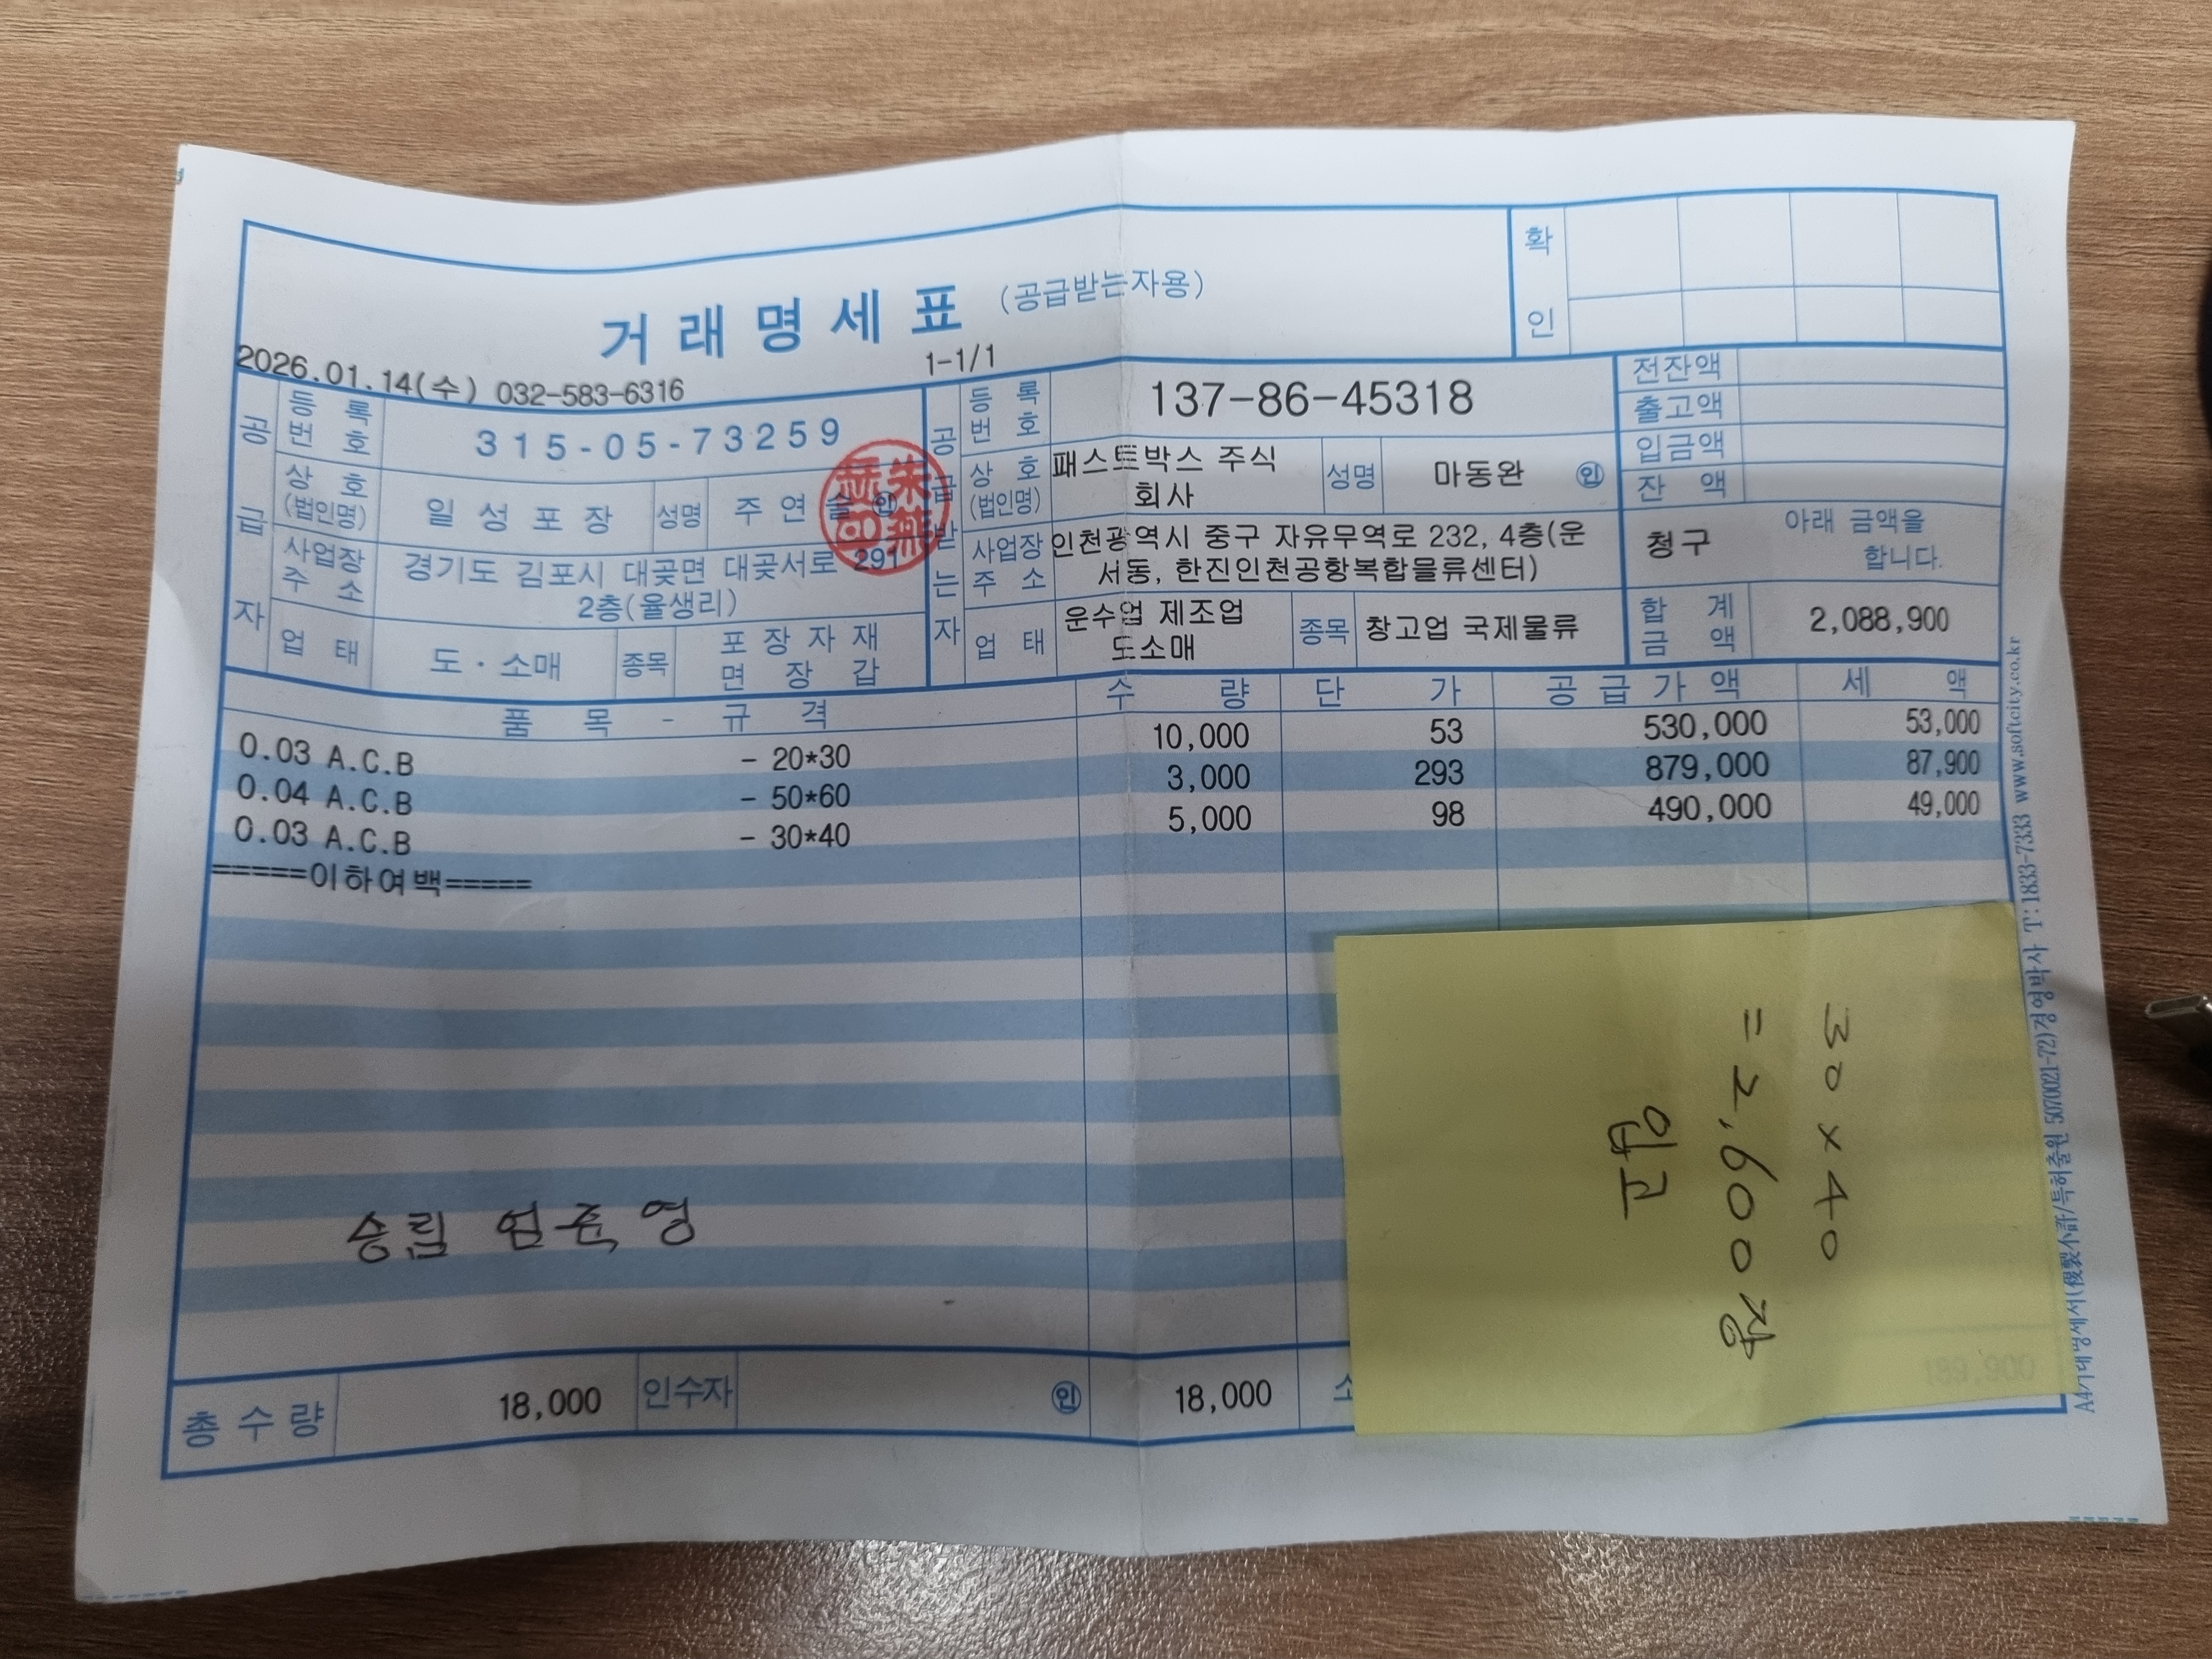 거래명세표 (공급받는자용)
확인
2026.01.14(수) 032-583-6316
1-1/1
공급자
등록번호
315-05-73259
상호(법인명)
일성포장
성명
주연술 인
사업장주소
경기도 김포시 대곶면 대곶서로 291
2층(율생리)
업태
도·소매
종목
포장자재
면장갑
공급받는자
등록번호
137-86-45318
상호(법인명)
패스트박스 주식
회사
성명
마동완 인
사업장주소
인천광역시 중구 자유무역로 232, 4층(운
서동, 한진인천공항복합물류센터)
업태
운수업 제조업
도소매
종목
창고업 국제물류
전잔액
출고액
입금액
잔액
청구
아래 금액을
합니다.
합계금액
2,088,900
품목 - 규격 수량 단가 공급가액 세액
0.03 A.C.B - 20*30 10,000 53 530,000 53,000
0.04 A.C.B - 50*60 3,000 293 879,000 87,900
0.03 A.C.B - 30*40 5,000 98 490,000 49,000
=====이하여백=====
30×40
=2,600장
입고
승림 엄준영
총수량 18,000 인수자 인 18,000
189,900
A4거래명세서(複製不許/특허출원 5070021-72)경영박사 T:1833-7333 www.softcity.co.kr